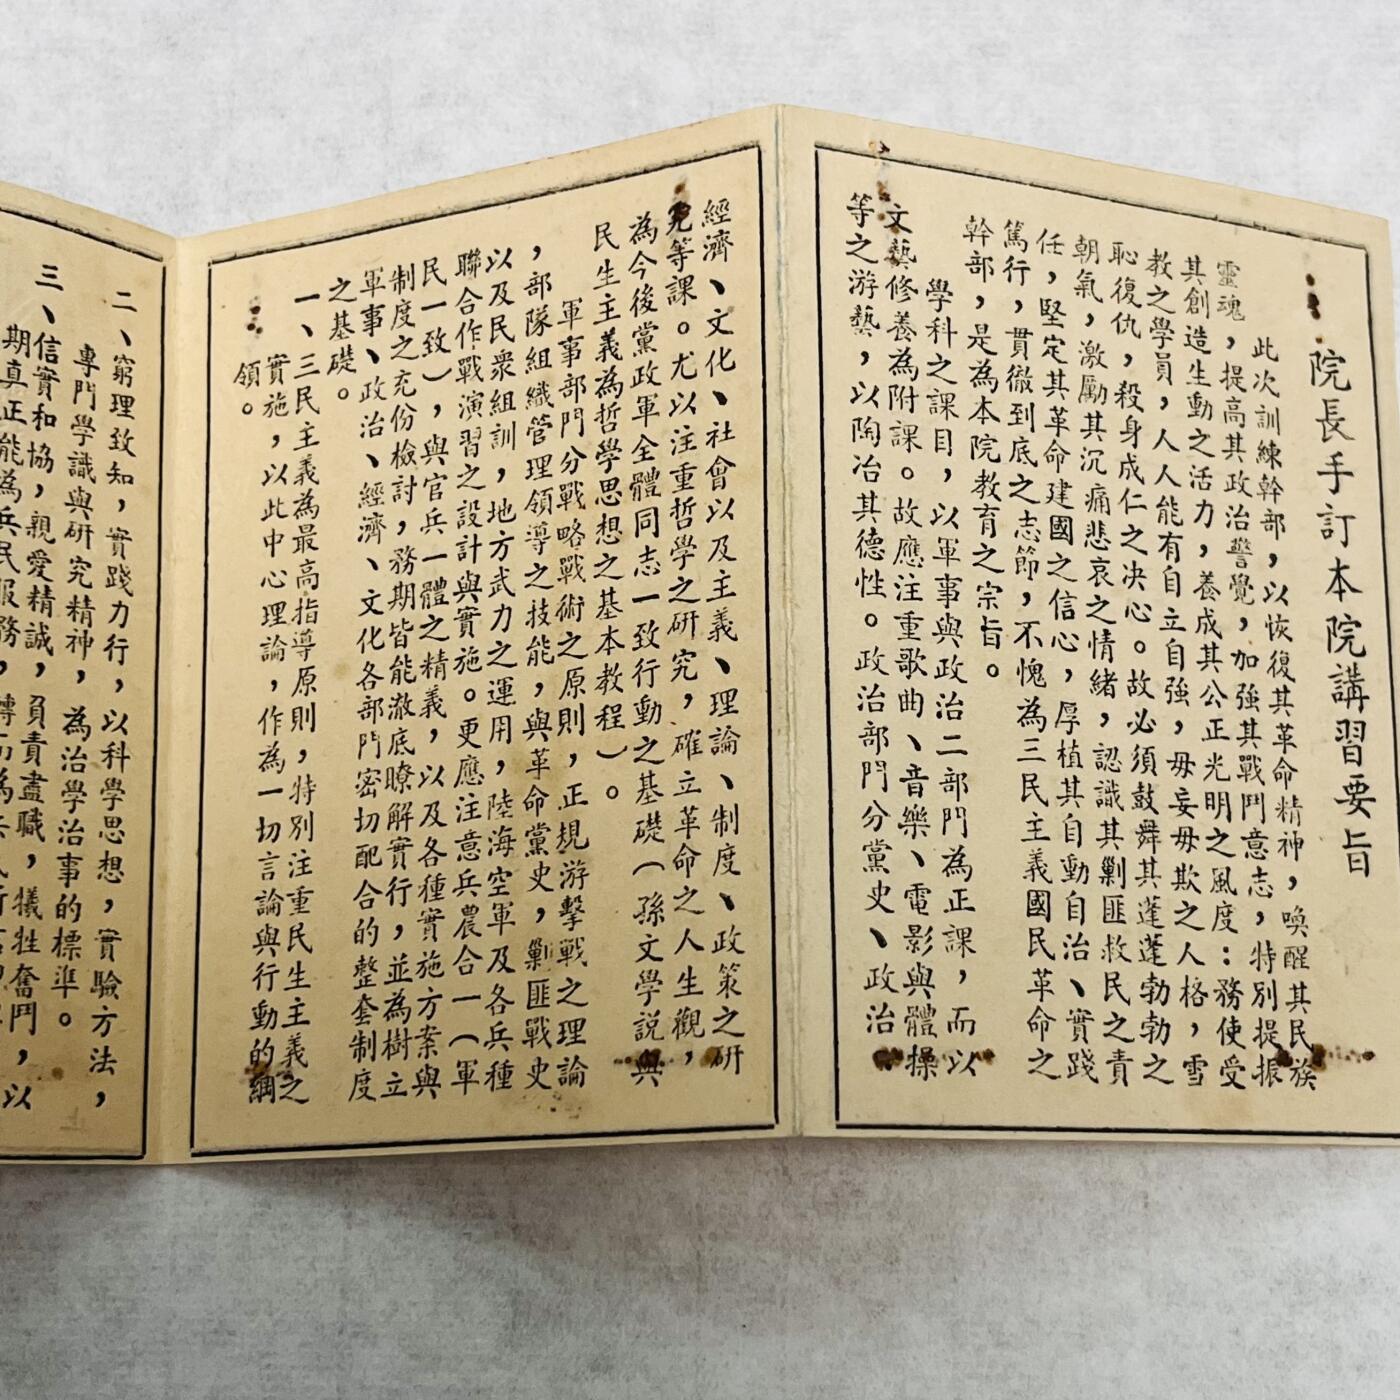 院長手訂本院講習要旨
此次訓練幹部，以恢復其革命精神，喚醒其民族
靈魂，提高其政治警覺，加強其戰鬥意志，特別提振
其創造生動之活力，養成其公正光明之風度：務使受
教之學員，人人能有自立自強，毋妄毋欺之人格，雪
恥復仇，殺身成仁之決心。故必須鼓舞其蓬蓬勃勃之
朝氣，激勵其沉痛悲哀之情緒，認識其剿匪救民之責
任，堅定其革命建國之信心，厚植其自動自治、實踐
篤行，貫徹到底之志節，不愧為三民主義國民革命之
幹部，是為本院教育之宗旨。
學科之課目，以軍事與政治二部門為正課，而以
文藝修養為附課。故應注重歌曲、音樂、電影與體操
等之游藝，以陶冶其德性。政治部門分黨史、政治、
經濟、文化、社會以及主義、理論、制度、政策之研
究等課。尤以注重哲學之研究，確立革命之人生觀，
為今後黨政軍全體同志一致行動之基礎（孫文學說與
民生主義為哲學思想之基本教程）。
軍事部門分戰略戰術之原則，正規游擊戰之理論
，部隊組織管理領導之技能，與革命黨史，剿匪戰史
以及民衆組訓，地方武力之運用，陸海空軍及各兵種
聯合作戰演習之設計與實施。更應注意兵農合一（軍
民一致），與官兵一體之精義，以及各種實施方案與
制度之充份檢討，務期皆能澈底瞭解實行，並為樹立
軍事、政治、經濟、文化各部門密切配合的整套制度
之基礎。
一、三民主義為最高指導原則，特別注重民生主義之
實施，以此中心理論，作為一切言論與行動的綱
領。
二、窮理致知，實踐力行，以科學思想，實驗方法，
專門學識與研究精神，為治學治事的標準。
三、信實和協，親愛精誠，負責盡職，犧牲奮鬥，以
期真正能為兵民服務，轉而為兵